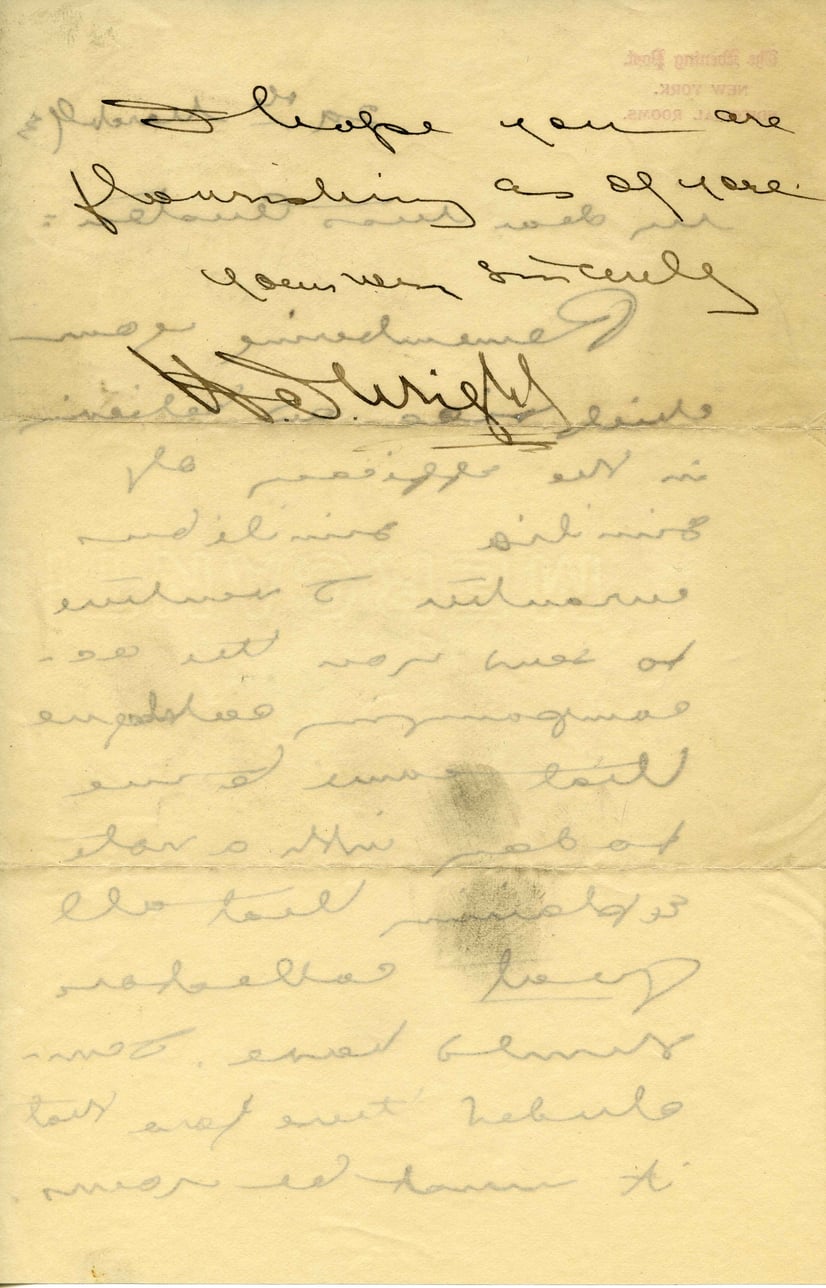 I hope you are
flourishing as of yore.
yours very sincerely
Wright
The Evening Post.
NEW YORK.
EDITORIAL ROOMS.
My dear Miss
Remembering your
in the efficacy of
I venture
to send you the ac-
companying catalogue
that came to me
today with a note
explaining that all
great collectors
should have. I con-
cluded therefore that
it must be yours